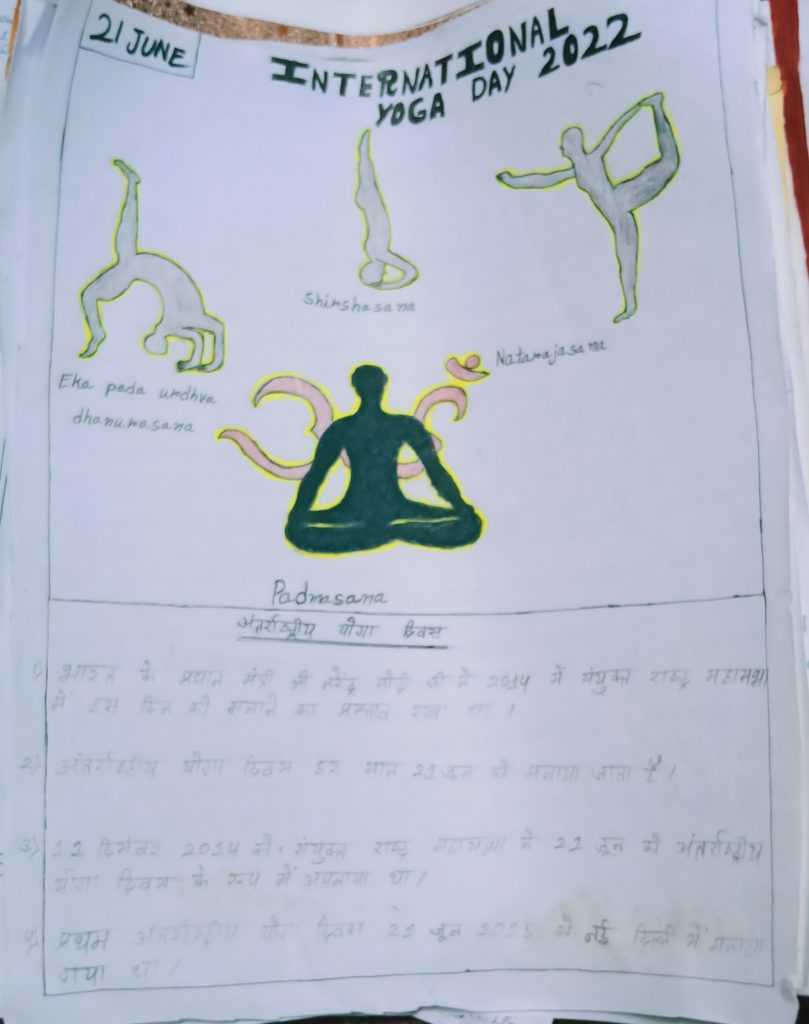 21 JUNE
INTERNATIONAL
YOGA DAY 2022
Shirshasana
Natarajasana
Eka pada urdhva
dhanurasana
Padmasana
अंतर्राष्ट्रीय योगा दिवस
1) भारत के प्रधान मंत्री श्री नरेंद्र मोदी जी ने 2014 में संयुक्त राष्ट्र महासभा
में इस दिन को मनाने का प्रस्ताव रखा था।
2) अंतर्राष्ट्रीय योगा दिवस हर साल 21 जून को मनाया जाता है।
3) 11 दिसंबर 2014 को, संयुक्त राष्ट्र महासभा ने 21 जून को अंतर्राष्ट्रीय
योगा दिवस के रूप में अपनाया था।
4) प्रथम अंतर्राष्ट्रीय योगा दिवस 21 जून 2015 को नई दिल्ली में मनाया
गया था।